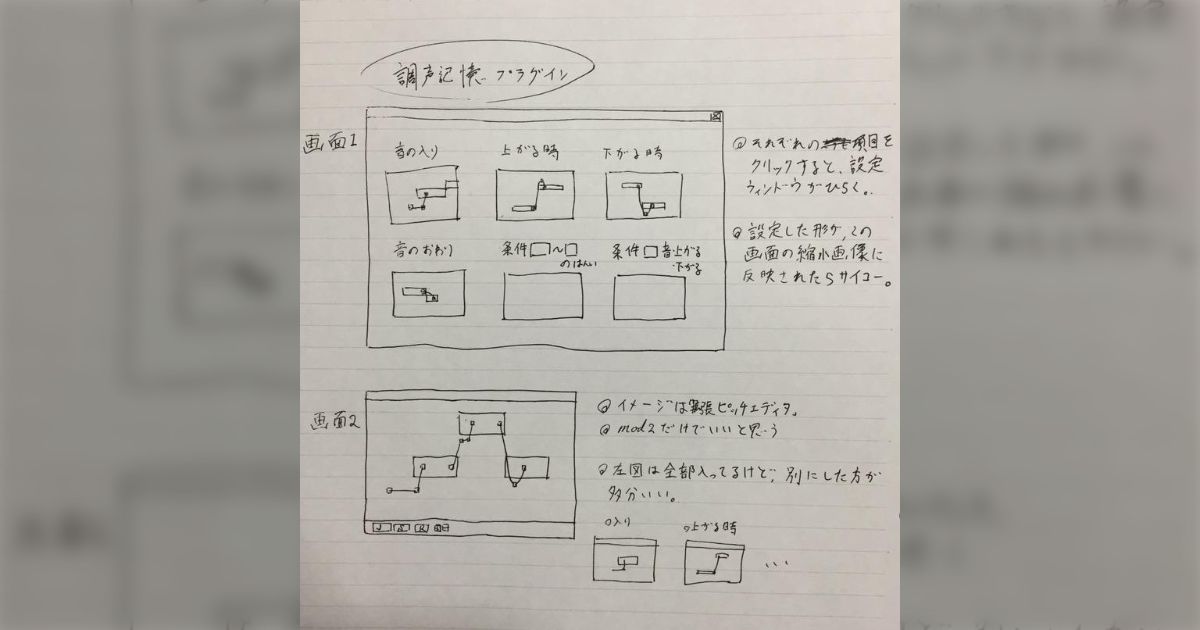 調声記憶プラグイン
画面1
音の入り
上がる時
下がる時
音のおわり
条件 〜
のはんい
条件 音上がる
下がる
それぞれの項目を
クリックすると、設定
ウィンドウがひらく。
設定した形が、この
画面の縮小画像に
反映されたらサイコー。
画面2
イメージは拡張ピッチエディタ。
mod2だけでいいと思う
左図は全部入ってるけど、別にした方が
多分いい。
入り
上がる時
...